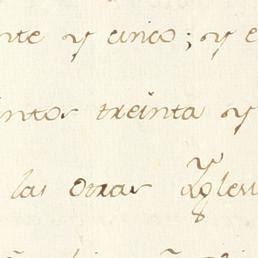 nte y cinco; y e
intos treinta y
las otras Ygles